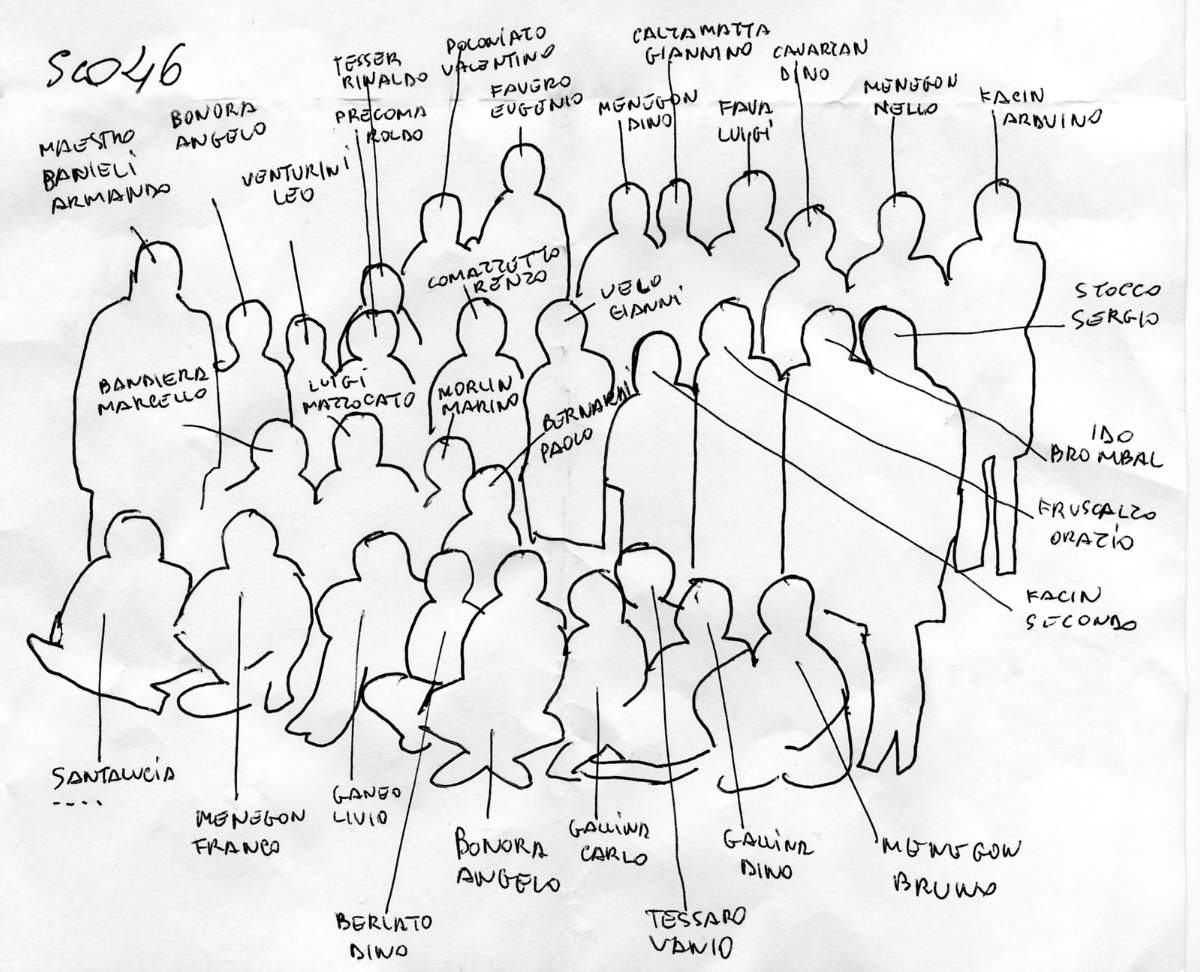 SCO46
MAESTRO
DANIELI
ARMANDO
BONORA
ANGELO
VENTURINI
LEO
TESSER
RINALDO
PRECOMA
ROLDO
POLONIATO
VALENTINO
FAVERO
EUGENIO
MENEGON
DINO
CALZAMATTA
GIANNINO
FAVA
LUIGI
CAVARZAN
DINO
MENEGON
NELLO
FACIN
ARDUINO
COMAZZETTO
RENZO
VELO
GIANNI
STOCCO
SERGIO
BANDIERA
MARCELLO
LUIGI
MAZZOCATO
MORLIN
MARINO
BERNARDI
PAOLO
IDO
BROMBAL
FRUSCALZO
ORAZIO
FACIN
SECONDO
SANTALUCIA
....
MENEGON
FRANCO
GANEO
LIVIO
BERLATO
DINO
BONORA
ANGELO
GALLINA
CARLO
TESSARO
VANIO
GALLINA
DINO
MENEGON
BRUNO